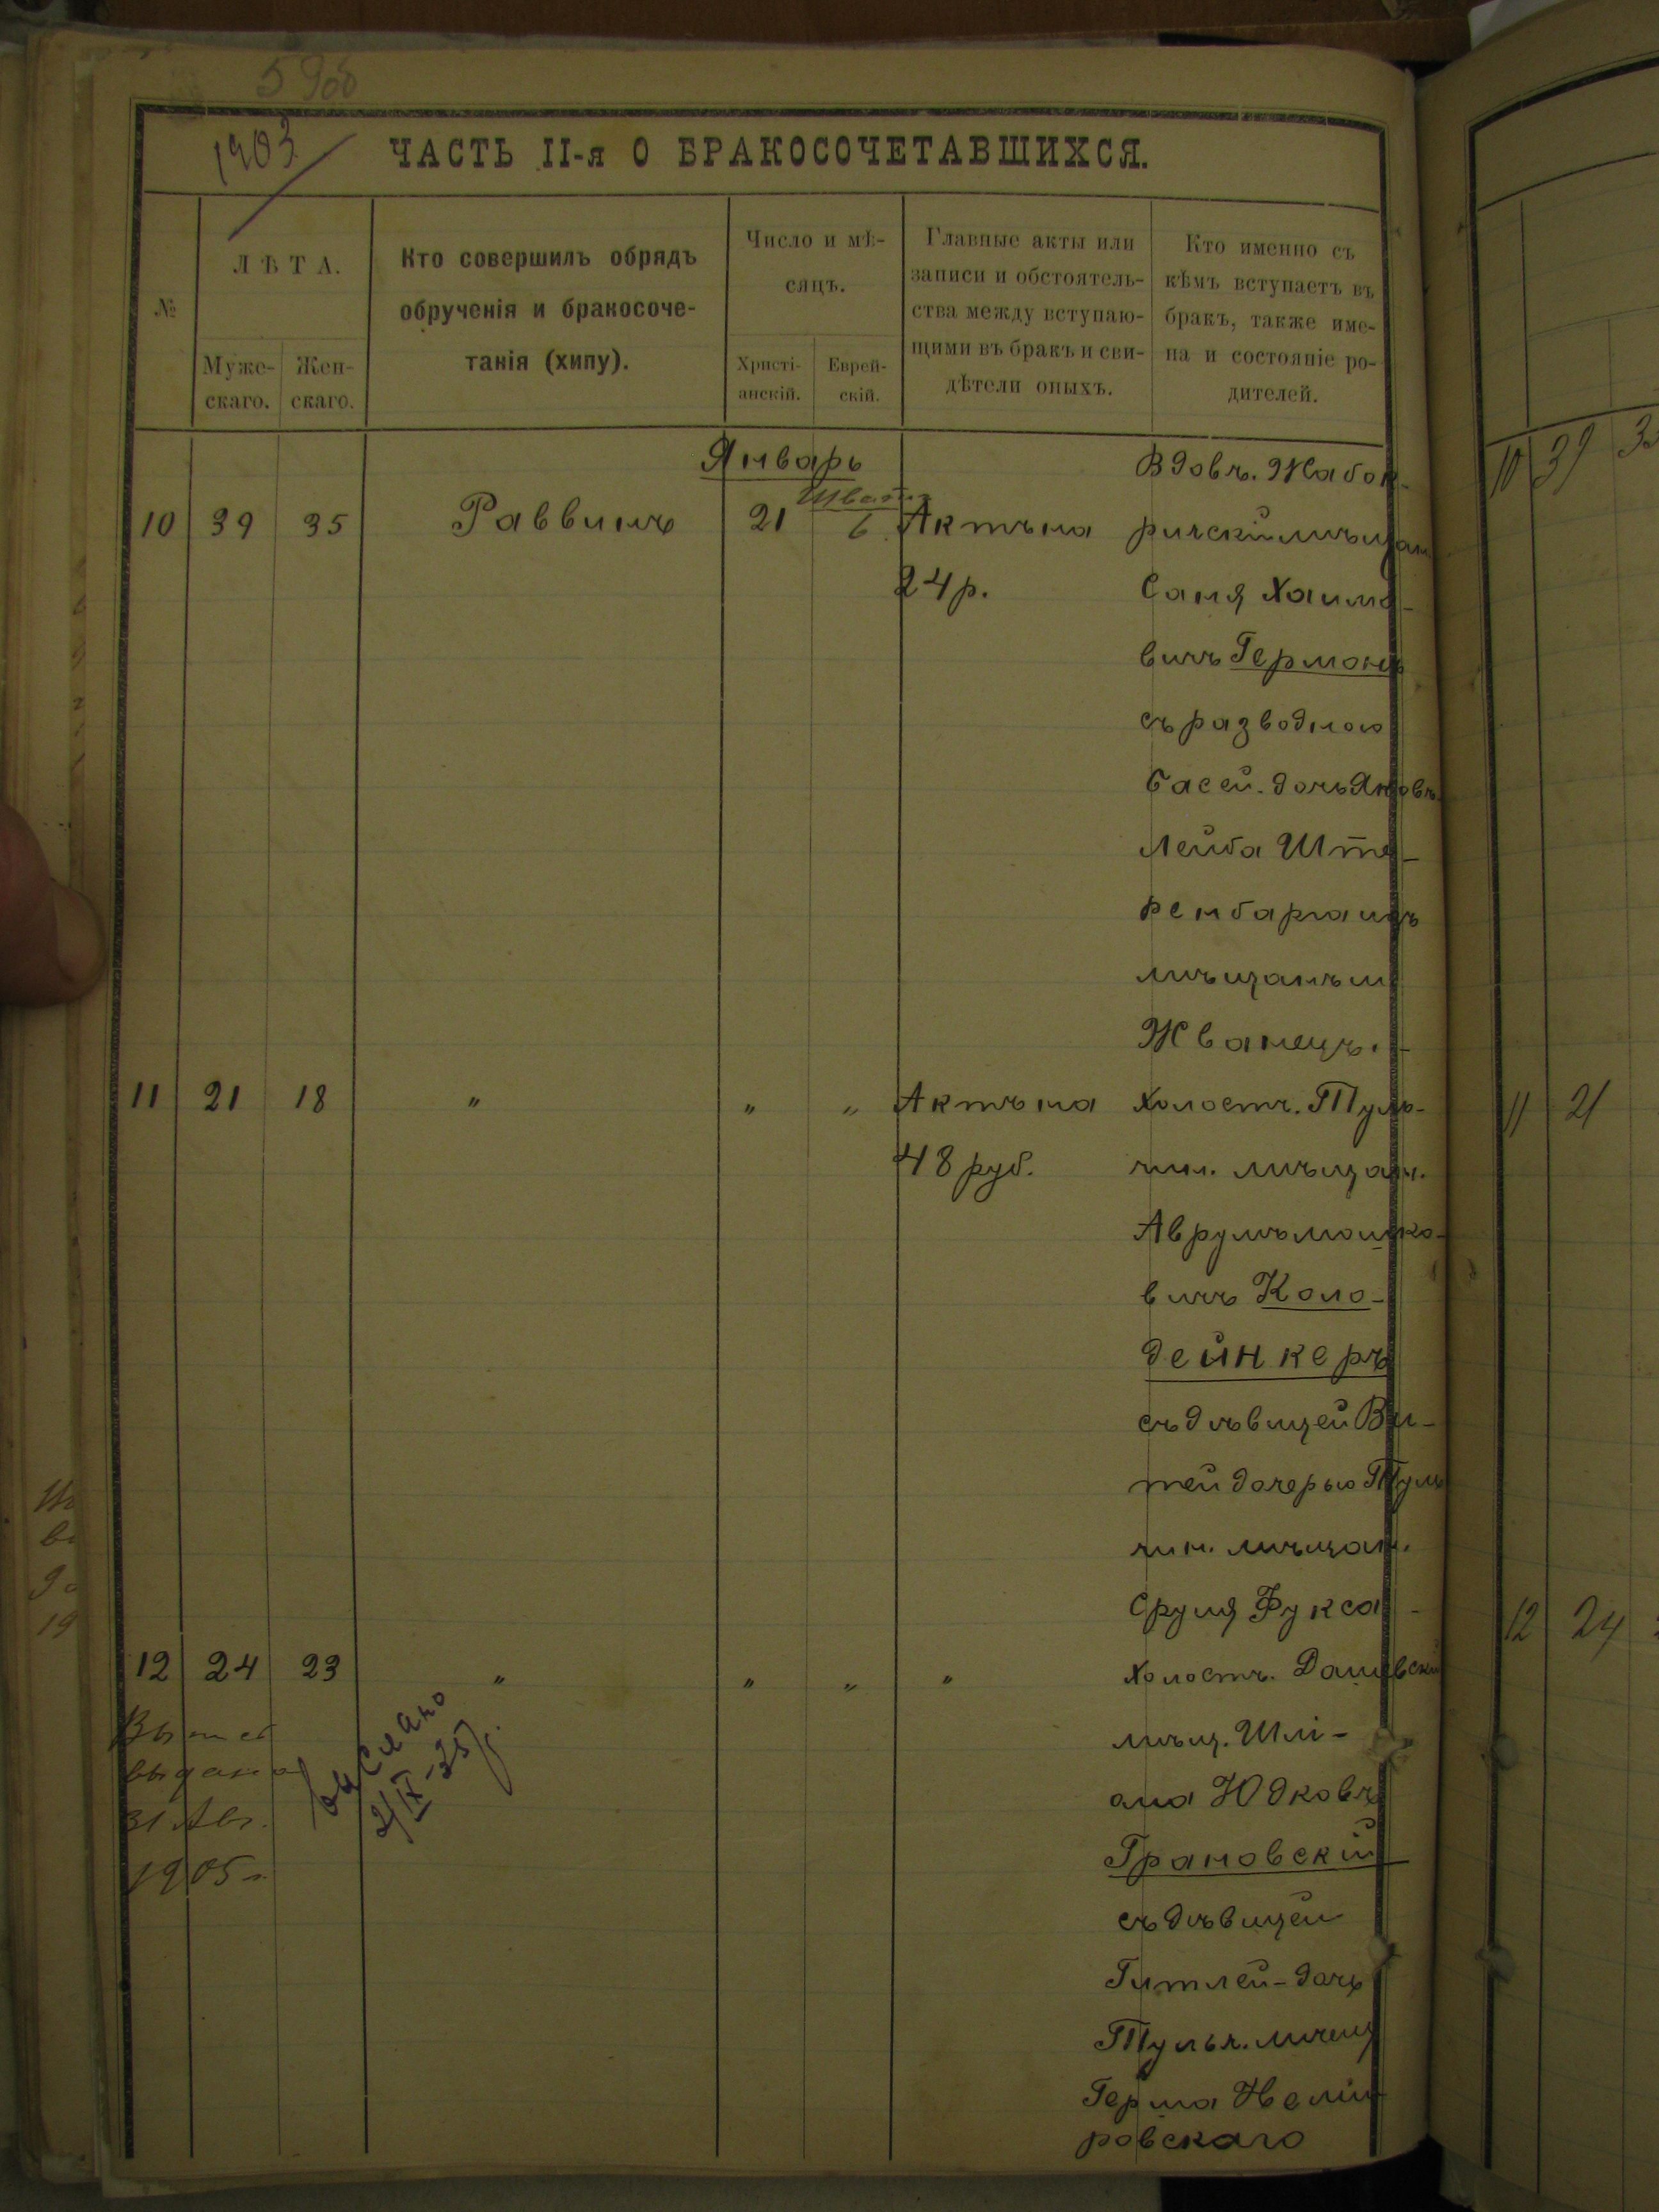 1903
ЧАСТЬ II-я О БРАКОСОЧЕТАВШИХСЯ.
№
ЛѢТА.
Муже-
скаго.
Жен-
скаго.
Кто совершилъ обрядъ
обрученія и бракосоче-
танія (хипу).
Число и мѣ-
сяцъ.
Христі-
анскій.
Еврей-
скій.
Главные акты или
записи и обстоятель-
ства между вступаю-
щими въ бракъ и сви-
дѣтели оныхъ.
Кто именно съ
кѣмъ вступаетъ въ
бракъ, также име-
на и состояніе ро-
дителей.
Январь
Шват
10 39 35 Раввинъ 21 6 Актъ на
24 р.
Вдовъ.
мѣщан
Саня Хаимо-
вичъ Германъ
съ разводною
Басей. дочь Янковъ
Лейба Ште-
ренбарга изъ
мѣщанъ м
Жванецъ.
11 21 18 " " " Актъ на
48 руб.
Холостъ. Туль-
чин. мѣщан.
Аврумъ Мошко-
вичъ Коло-
дейнкеръ
съ дѣвицей Ви-
тей дочерью Туль
чин. мѣщан.
Сруля Фукса -
12 24 23 " " " "
Холостъ. Дашевскій
мѣщ. Шлі-
ома Юдковъ
Грановскій
съ дѣвицей
Гитлей - дочь
Тульч. мѣщ
Герша Неми-
ровскаго
выдано
31 Авг.
1905 г.
выслано
2/IX-35 г.
10 39
11 21
12 24